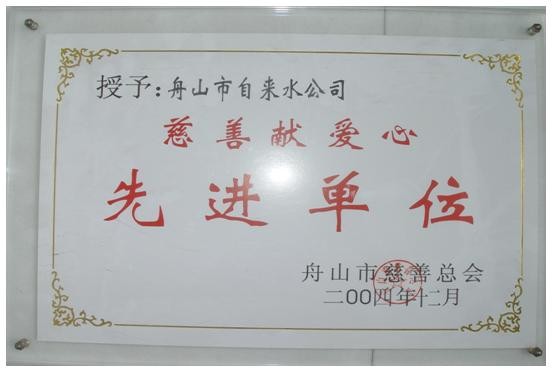 授予：舟山市自来水公司
慈善献爱心
先进单位
舟山市慈善总会
二00四年十二月